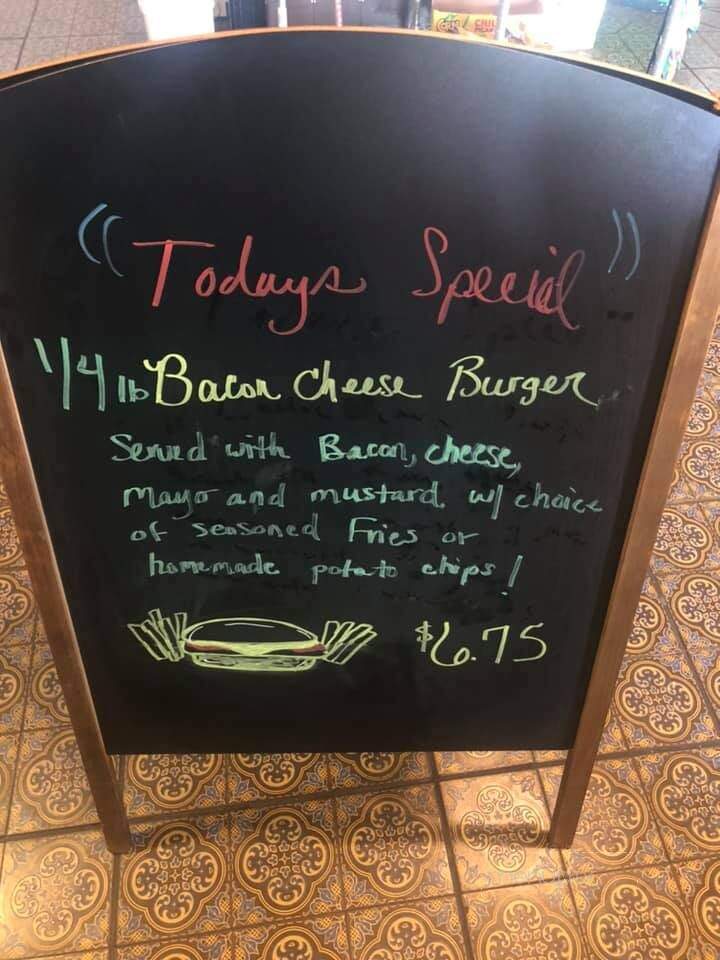 "Todays Special"
1/4 lb Bacon Cheese Burger
Served with Bacon, cheese,
mayo and mustard. w/ choice
of seasoned Fries or
homemade potato chips!
$6.75